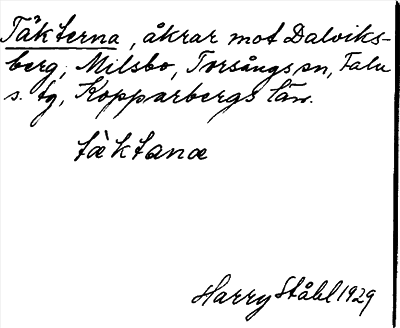 Täkterna, åkrar mot Dalviks-
berg, Milsbo, Torsångs sn, Falu
s. tg, Kopparbergs län.
tὰktanα
Harry Ståhl 1929